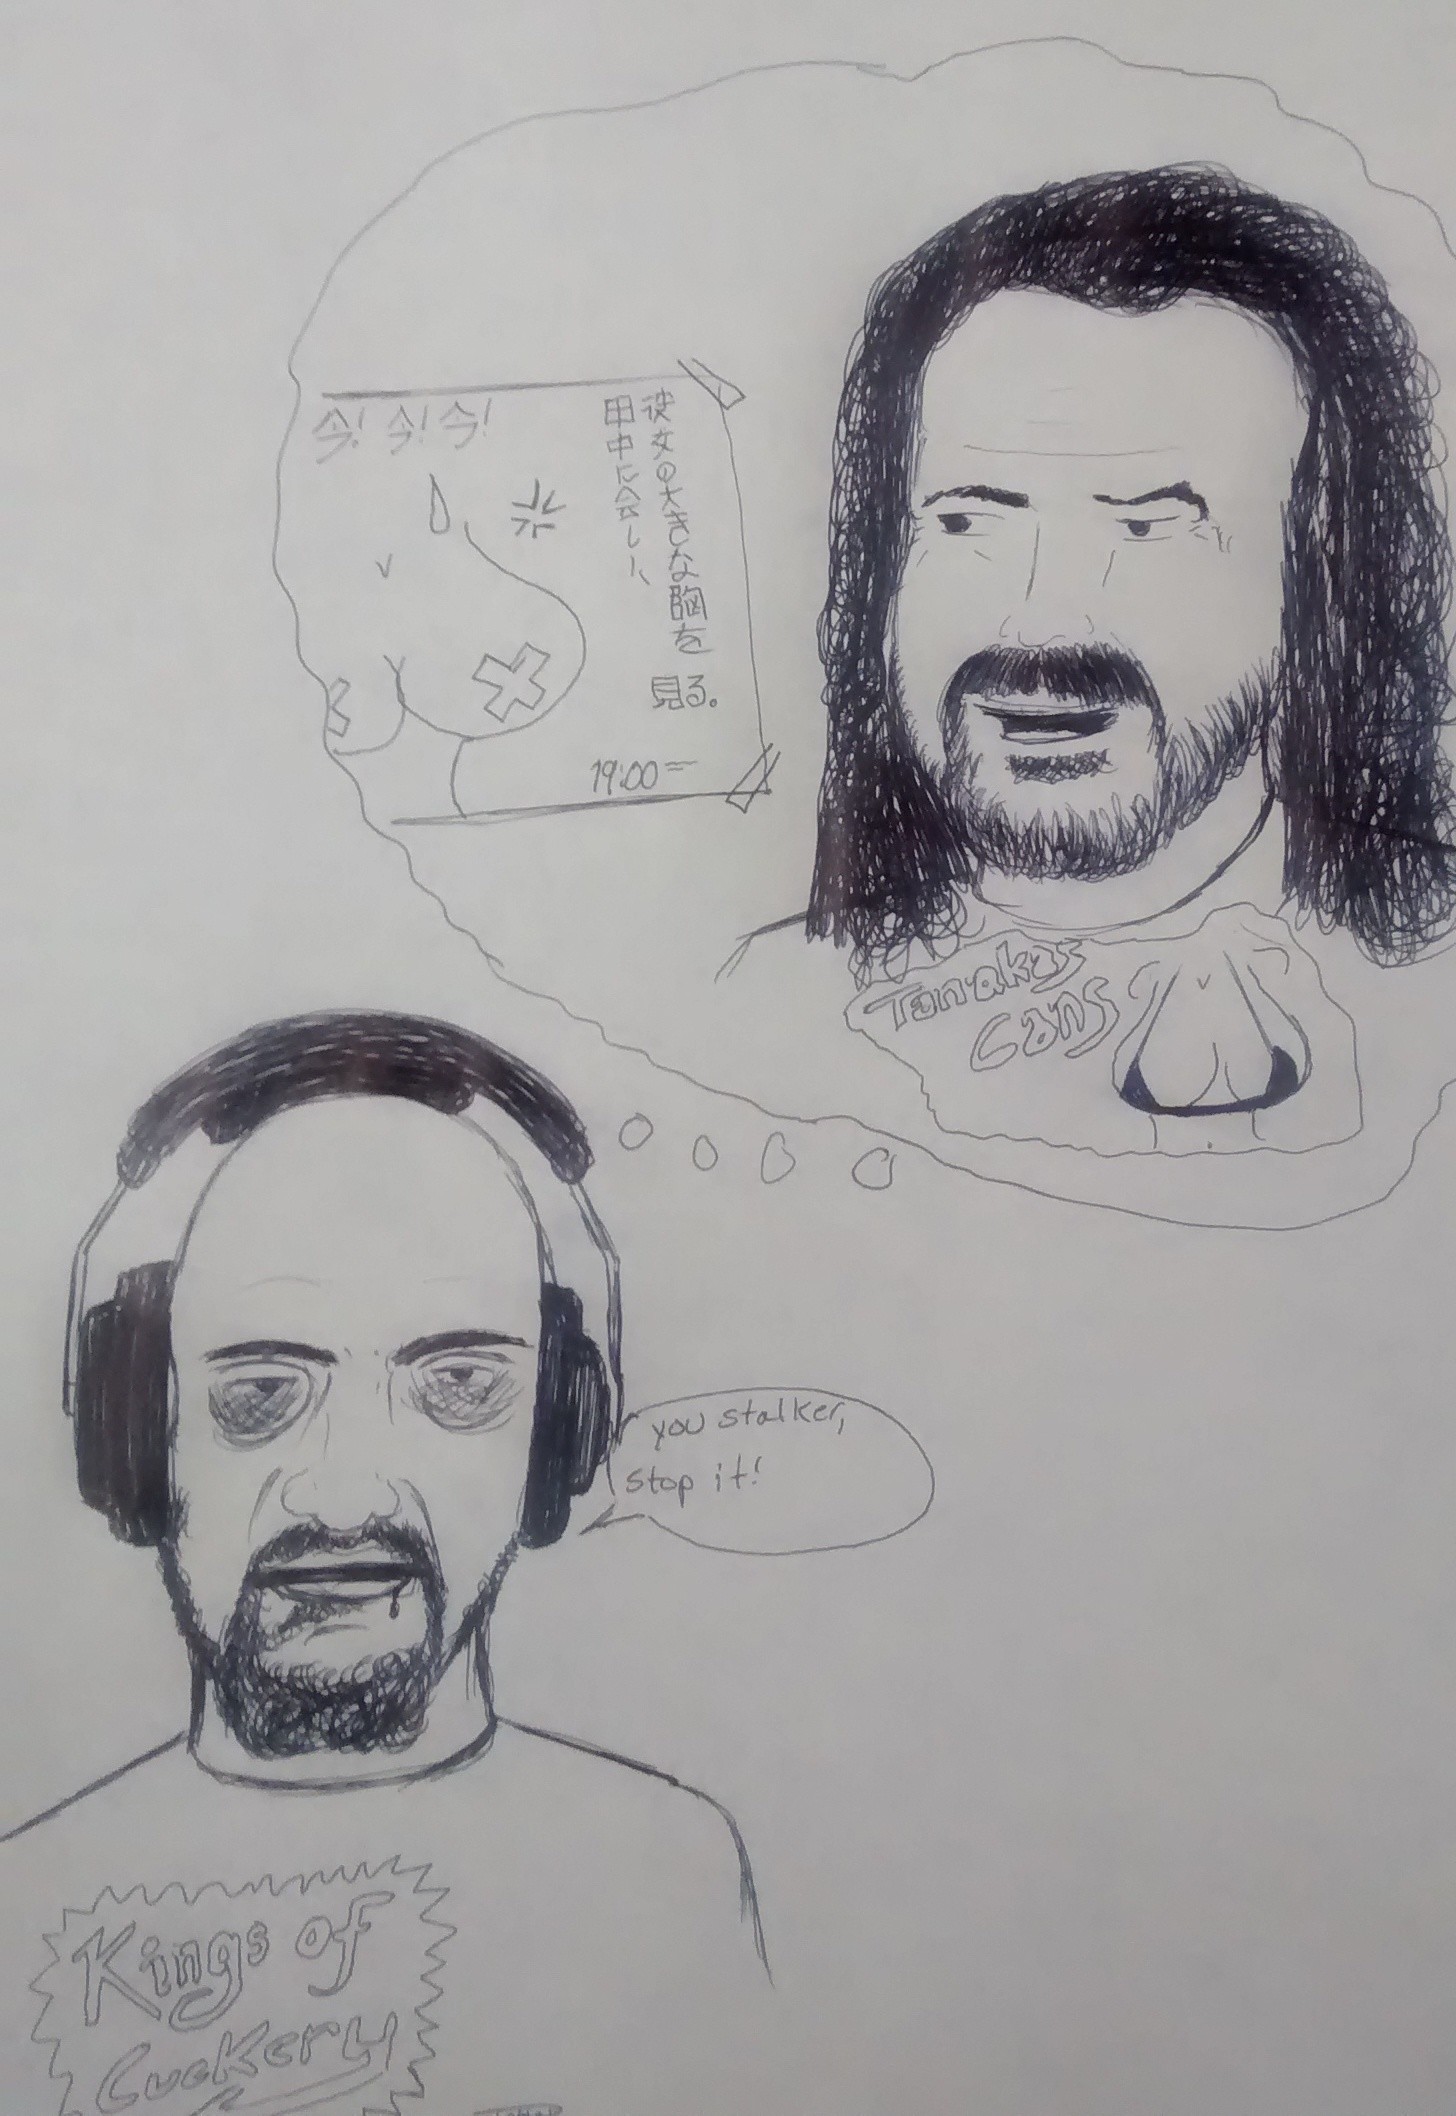 今! 今! 今!
彼女の大きな胸を
見る。
田中に会い、
19:00
Tanakas
Cans
you stalker,
stop it!
Kings of
Cuckery